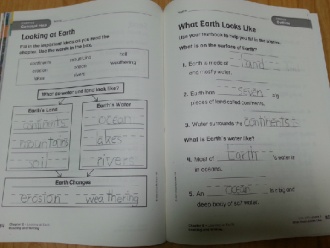 Looking at Earth
Fill in the important ideas as you read the
chapter. Use the words in the box.
continents mountains soil
erosion ocean weathering
lakes rivers
What do water and land look like?
Earth's Land
continents
mountains
soil
Earth's Water
ocean
lakes
rivers
Earth Changes
erosion weathering
What Earth Looks Like
Use your textbook to help you fill in the blanks.
What is on the surface of Earth?
1. Earth is made of land
and mostly water.
2. Earth has seven big
pieces of land called continents.
3. Water surrounds the continents
What is Earth's water like?
4. Most of Earth 's water is
in oceans.
5. An ocean is a big and
deep body of salt water.